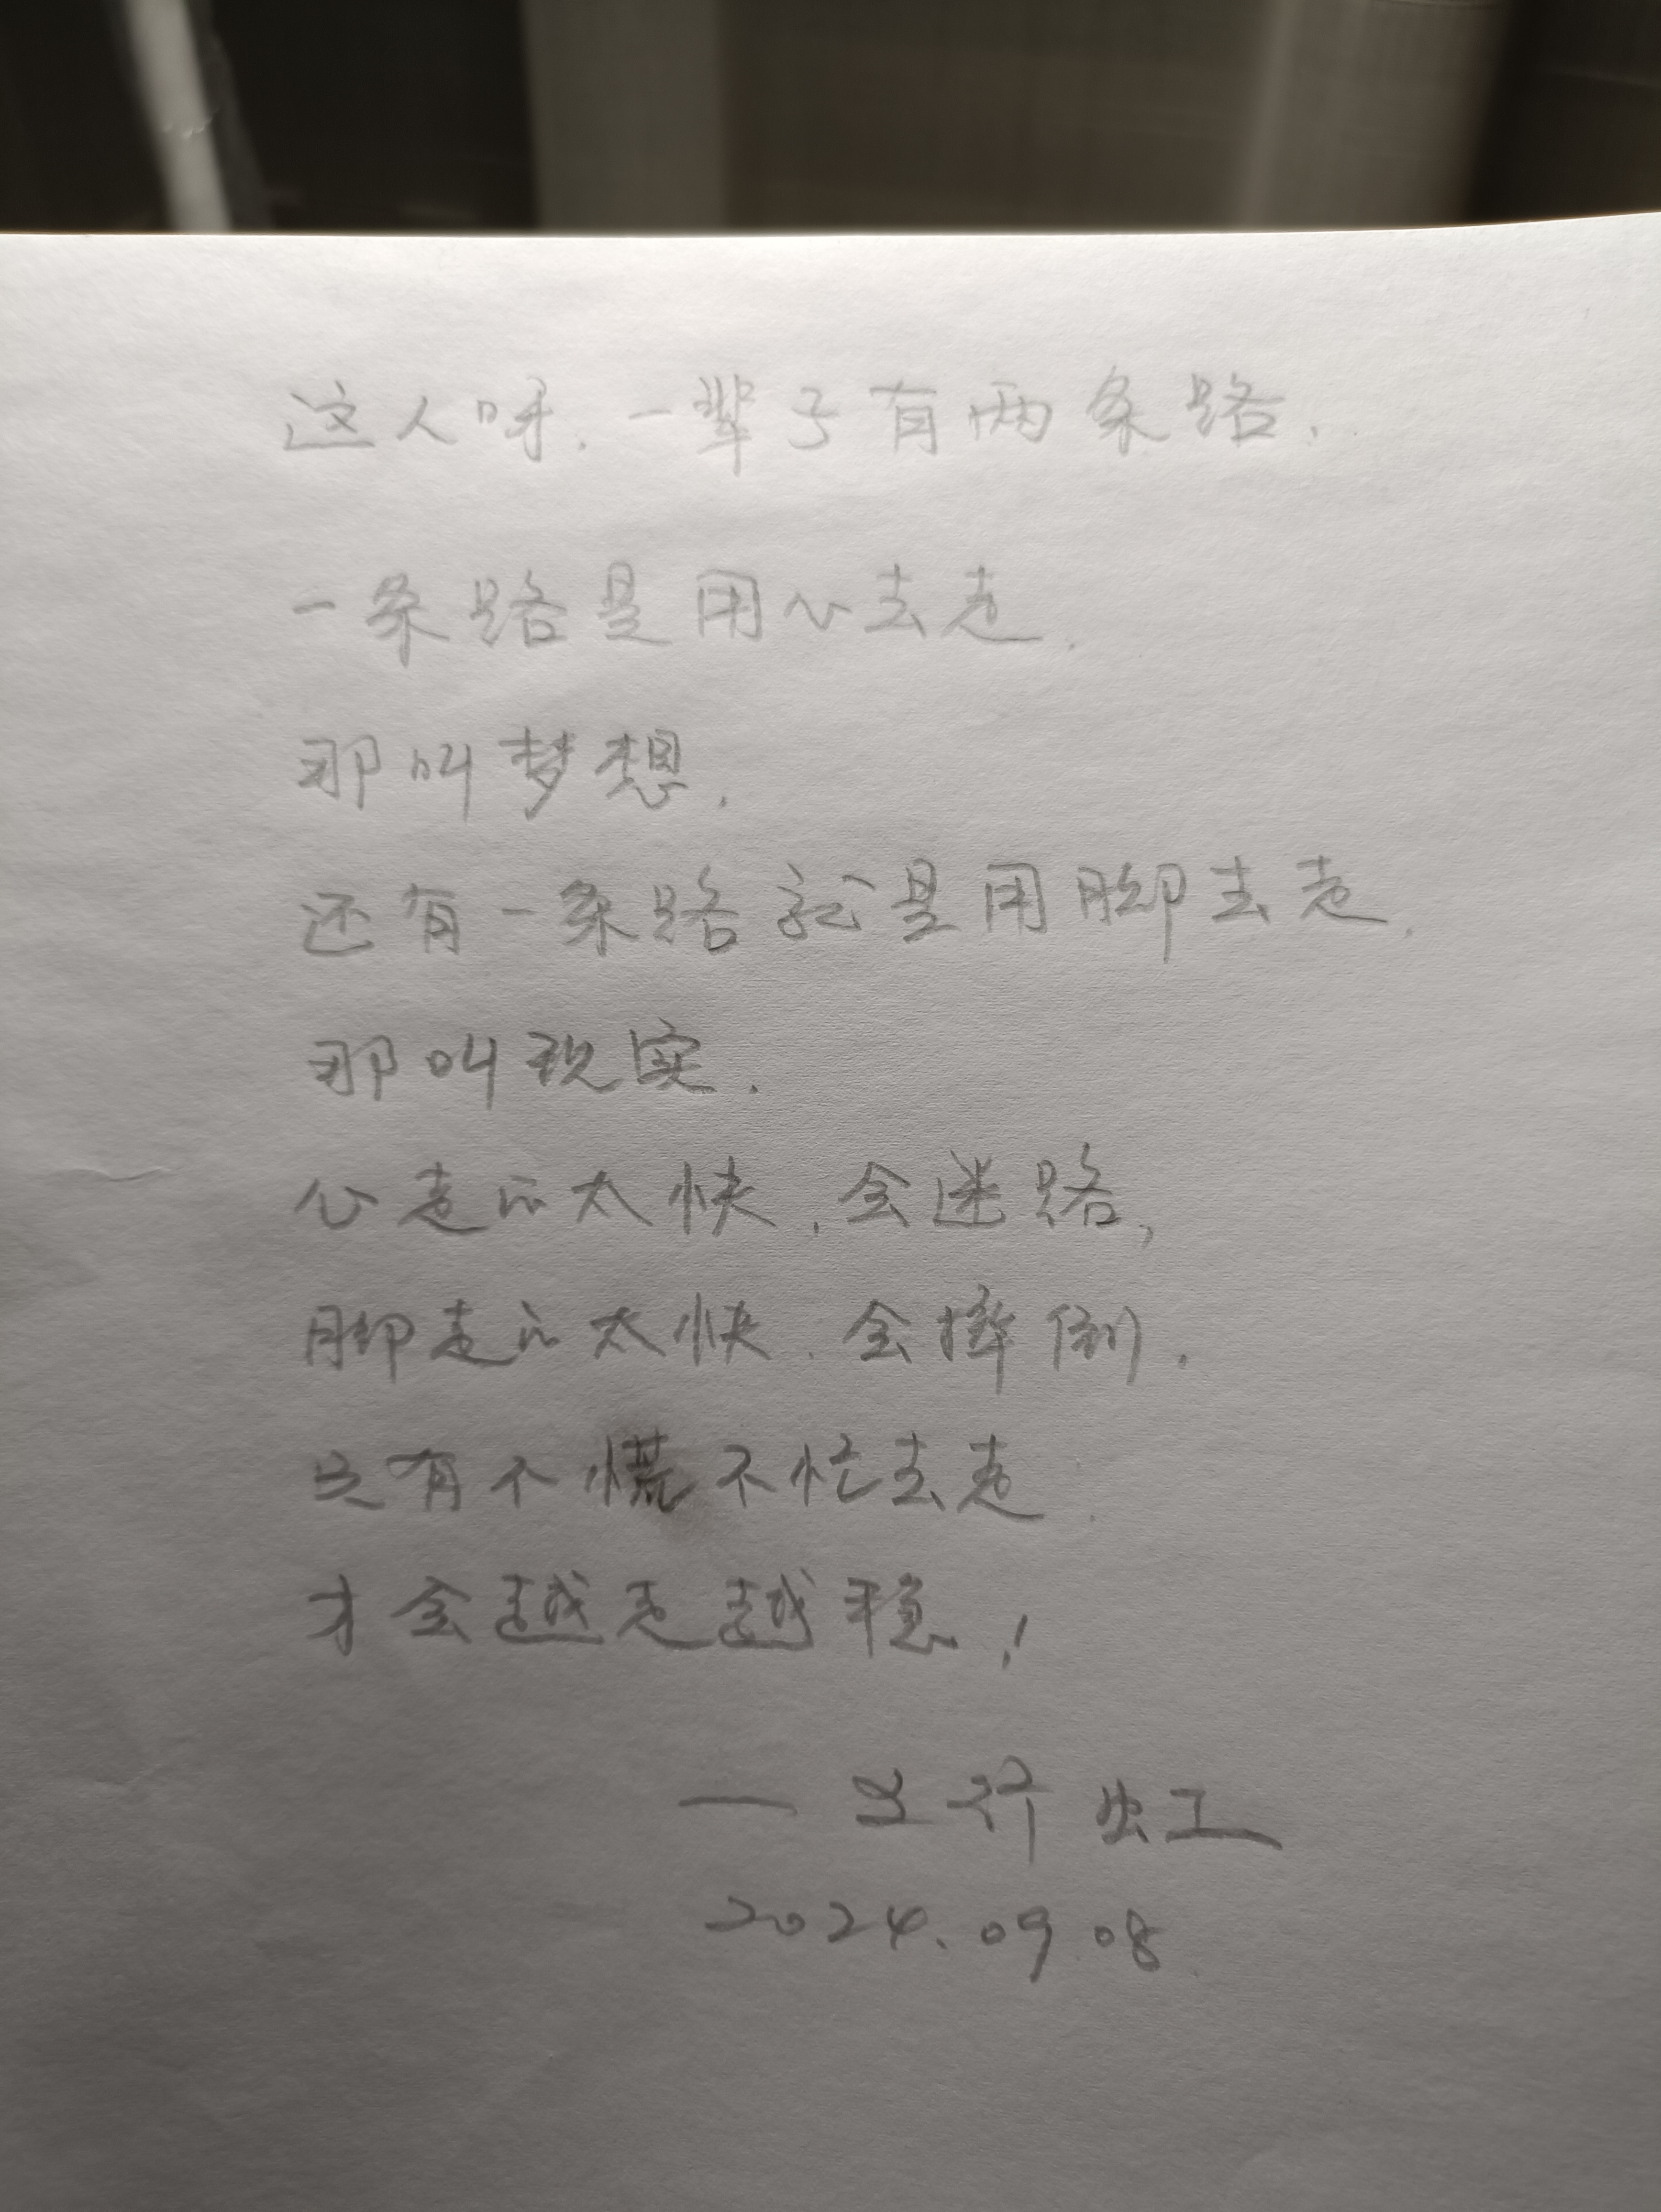 这人呀，一辈子有两条路，
一条路是用心去走，
那叫梦想，
还有一条路就是用脚去走，
那叫现实．
心走的太快，会迷路，
脚走的太快，会摔倒，
只有不慌不忙去走，
才会越走越稳！
2024.09.08